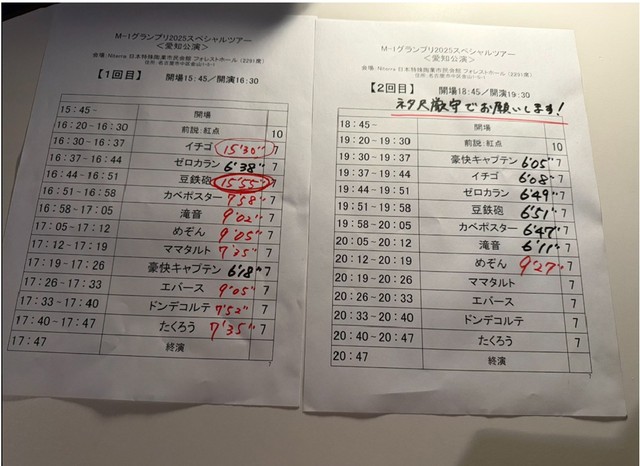 M-1グランプリ2025スペシャルツアー
＜愛知公演＞
会場:Niterra 日本特殊陶業市民会館 フォレストホール(2291席)
住所:名古屋市中区金山1-5-1
【1回目】 開場15:45／開演16:30
15:45～ 開場
16:20-16:30 前説:紅点 10
16:30-16:37 イチゴ 15'30" 7
16:37-16:44 ゼロカラン 6'38" 7
16:44-16:51 豆鉄砲 15'55" 7
16:51-16:58 カベポスター 7'58" 7
16:58-17:05 滝音 9'02" 7
17:05-17:12 めぞん 9'05" 7
17:12-17:19 ママタルト 7'35" 7
17:19-17:26 豪快キャプテン 6'18" 7
17:26-17:33 エバース 9'05" 7
17:33-17:40 ドンデコルテ 7'52" 7
17:40-17:47 たくろう 7'35" 7
17:47 終演
M-1グランプリ2025スペシャルツアー
＜愛知公演＞
会場:Niterra 日本特殊陶業市民会館 フォレストホール(2291席)
住所:名古屋市中区金山1-5-1
【2回目】 開場18:45／開演19:30
ネタ尺厳守でお願いします!
18:45～ 開場
19:20-19:30 前説:紅点 10
19:30-19:37 豪快キャプテン 6'05" 7
19:37-19:44 イチゴ 6'08" 7
19:44-19:51 ゼロカラン 6'49" 7
19:51-19:58 豆鉄砲 6'51" 7
19:58-20:05 カベポスター 6'47" 7
20:05-20:12 滝音 6'11" 7
20:12-20:19 めぞん 9'27" 7
20:19-20:26 ママタルト 7
20:26-20:33 エバース 7
20:33-20:40 ドンデコルテ 7
20:40-20:47 たくろう 7
20:47 終演